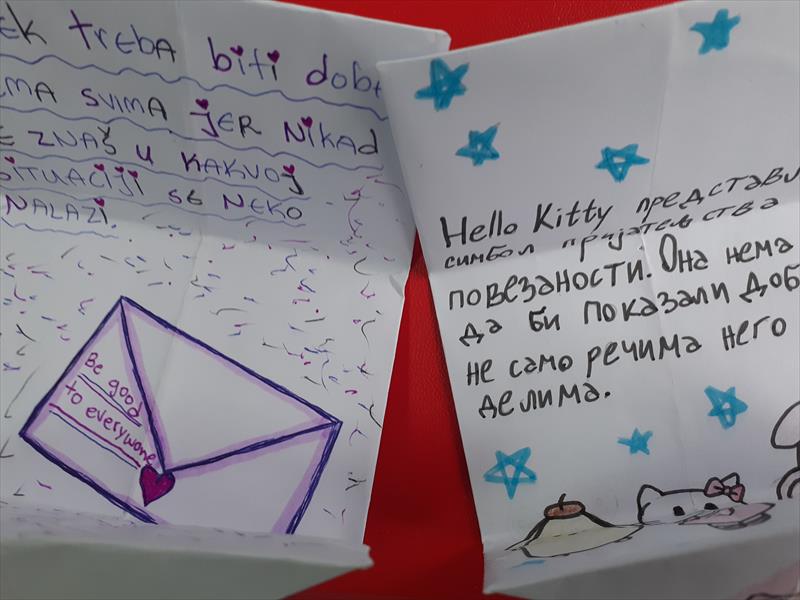 EK TREBA biti dobr
EMA SVIMA JER NIKAD
E ZNAŠ U KAKVOJ
SITUACIJI SE NEKO
NALAZI.
Be good
to everywone
Hello Kitty представи
симбол пријатељства
повезаности. Она нема
да би показали доб
не само речима него
делима.